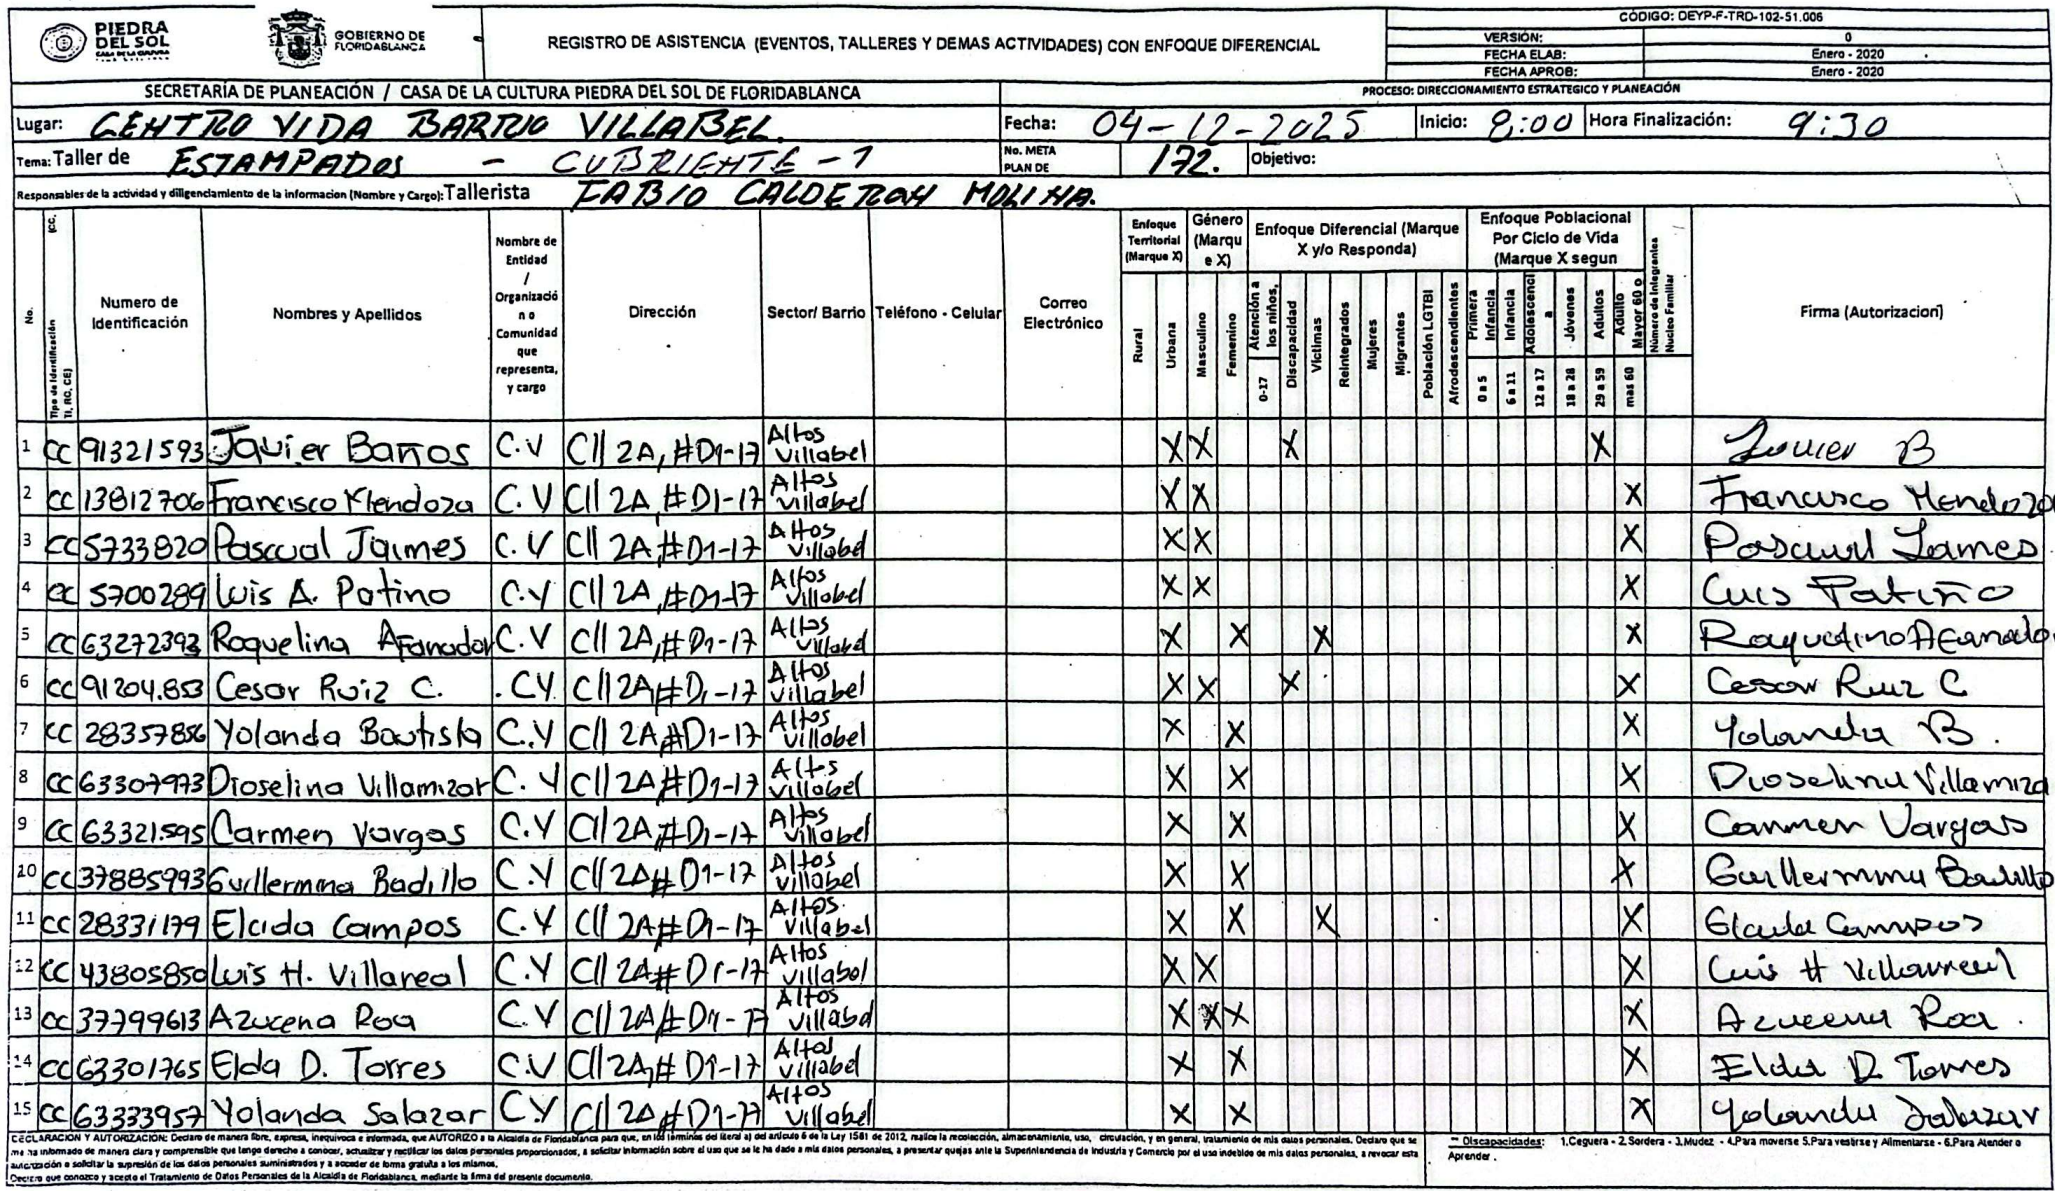 PIEDRA DEL SOL
CASA DE LA CULTURA
GOBIERNO DE FLORIDABLANCA
REGISTRO DE ASISTENCIA (EVENTOS, TALLERES Y DEMAS ACTIVIDADES) CON ENFOQUE DIFERENCIAL
CÓDIGO: DEYP-F-TRD-102-51.006
VERSIÓN: 0
FECHA ELAB: Enero - 2020
FECHA APROB: Enero - 2020
SECRETARÍA DE PLANEACIÓN / CASA DE LA CULTURA PIEDRA DEL SOL DE FLORIDABLANCA
PROCESO: DIRECCIONAMIENTO ESTRATEGICO Y PLANEACIÓN
Lugar: CENTRO VIDA BARRIO VILLABEL. Fecha: 04-12-2025 Inicio: 8:00 Hora Finalización: 9:30
Tema: Taller de ESTAMPADOS - CUBRIENTE - 1 No. META PLAN DE 172. Objetivo:
Responsables de la actividad y diligenciamiento de la informacion (Nombre y Cargo): Tallerista FABIO CALDERON MOLINA.
No. Tipo de Identificación (CC, TI, RC, CE) Numero de Identificación Nombres y Apellidos Nombre de Entidad / Organización o Comunidad que representa, y cargo Dirección Sector/ Barrio Teléfono - Celular Correo Electrónico Enfoque Territorial (Marque X) Género (Marque X) Enfoque Diferencial (Marque X y/o Responda) Enfoque Poblacional Por Ciclo de Vida (Marque X segun Número de Integrantes Nucleo Familiar Firma (Autorizacion)
Rural Urbana Masculino Femenino Atención a los niños, 0-17 Discapacidad Víctimas Reintegrados Mujeres Migrantes Población LGTBI Afrodescendientes Primera Infancia 0 a 5 Infancia 6 a 11 Adolescencia 12 a 17 Jóvenes 18 a 28 Adultos 29 a 59 Adulto Mayor 60 o mas 60
1 CC 91321593 Javier Barros C.V Cll 2A, #D1-17 Altos Villabel X X X X Javier B
2 CC 13812706 Francisco Mendoza C.V Cll 2A, #D1-17 Altos Villabel X X X Francisco Mendoza
3 CC 5733820 Pascual Jaimes C.V Cll 2A, #D1-17 Altos Villabel X X X Pascual James
4 CC 5700289 Luis A. Patino C.V Cll 2A, #D1-17 Altos Villabel X X X Luis Patiño
5 CC 63272393 Roquelina Afanador C.V Cll 2A, #D1-17 Altos Villabel X X X X
6 CC 91204.853 Cesar Ruiz C. C.V Cll 2A, #D1-17 Altos Villabel X X X X Cesar Ruiz C
7 CC 28357856 Yolanda Bautista C.V Cll 2A, #D1-17 Altos Villabel X X X Yolanda B.
8 CC 63307973 Dioselina Villamizar C.V Cll 2A, #D1-17 Altos Villabel X X X Dioselina Villamiza
9 CC 63321.595 Carmen Vargas C.V Cll 2A, #D1-17 Altos Villabel X X X Carmen Vargas
10 CC 37885993 Guillermina Badillo C.V Cll 2A # D1-17 Altos Villabel X X X Guillermina Badillo
11 CC 28331179 Elcida Campos C.V Cll 2A # D1-17 Altos Villabel X X X X Elcida Campos
12 CC 43805850 Luis H. Villareal C.V Cll 2A # D1-17 Altos Villabel X X X Luis H Villarreal
13 CC 37799613 Azucena Roa C.V Cll 2A, # D1-17 Altos Villabel X X X Azucena Roa.
14 CC 63301765 Elda D. Torres C.V Cll 2A, # D1-17 Altos Villabel X X X Elda D Torres
15 CC 63333957 Yolanda Salazar C.V Cll 2A, # D1-17 Altos Villabel X X X Yolanda Salazar
DECLARACION Y AUTORIZACIÓN: Declaro de manera libre, expresa, inequivoca e informada, que AUTORIZO a la Alcaldía de Floridablanca para que, en los términos del literal a) del artículo 6 de la Ley 1581 de 2012, realice la recolección, almacenamiento, uso, circulación, y en general, tratamiento de mis datos personales. Declaro que se
me ha informado de manera clara y comprensible que tengo derecho a conocer, actualizar y rectificar los datos personales proporcionados, a solicitar información sobre el uso que se le ha dado a mis datos personales, a presentar quejas ante la Superintendencia de Industria y Comercio por el uso indebido de mis datos personales, a revocar esta
autorización o solicitar la supresión de los datos personales suministrados y a acceder de forma gratuita a los mismos.
Declaro que conozco y acepto el Tratamiento de Datos Personales de la Alcaldía de Floridablanca, mediante la firma del presente documento.
** Discapacidades: 1.Ceguera - 2.Sordera - 3.Mudez - 4.Para moverse 5.Para vestirse y Alimentarse - 6.Para Atender o
Aprender .